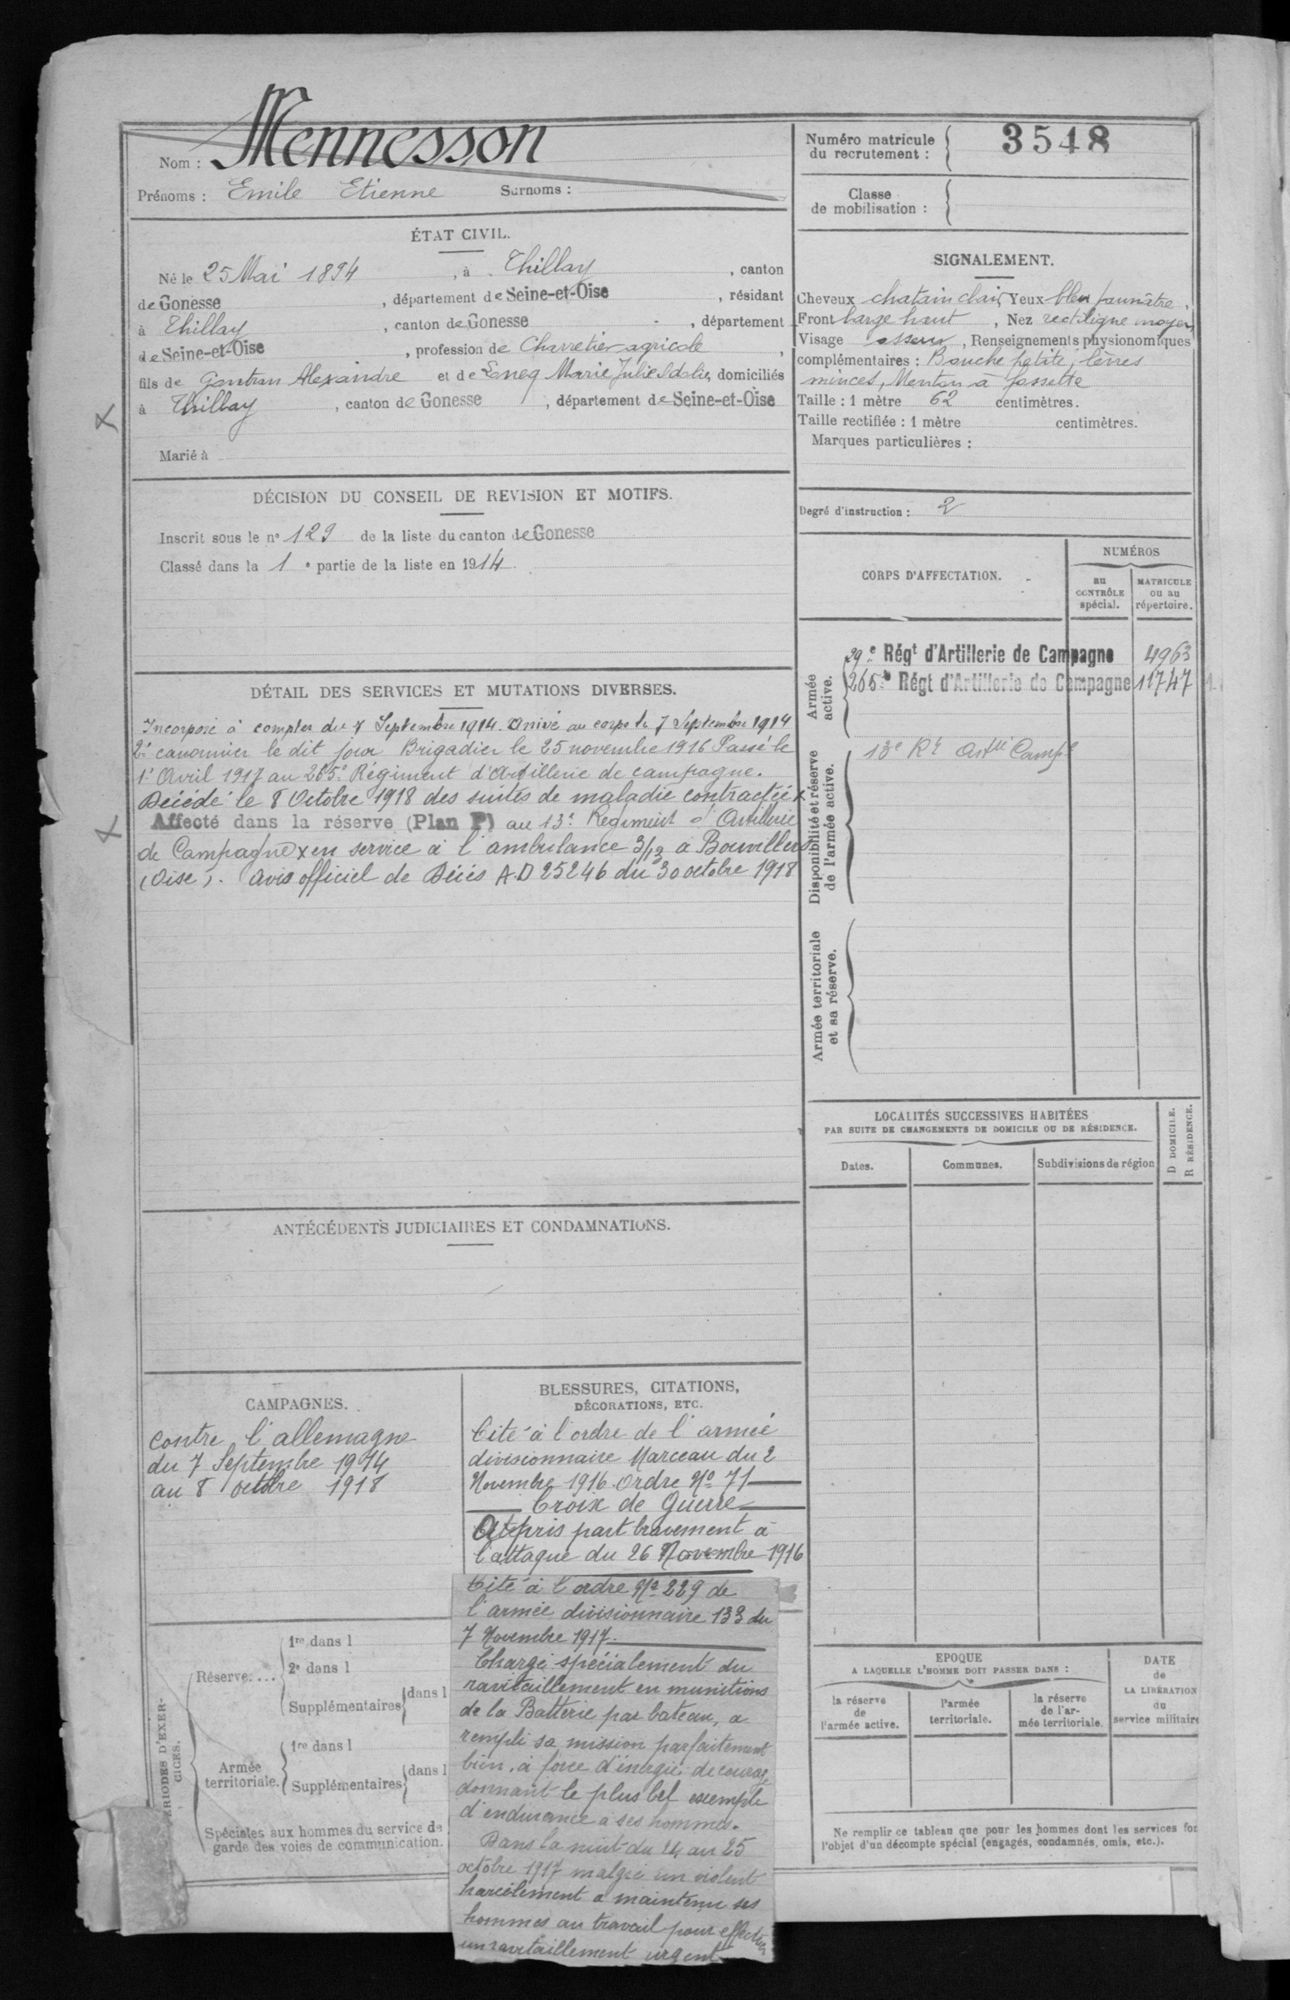 Nom : Mennesson
Prénoms : Emile Etienne Surnoms :
ÉTAT CIVIL.
Né le 25 Mai 1894, à Thillay, canton
de Gonesse, département de Seine-et-Oise, résidant
à Thillay, canton de Gonesse, département
de Seine-et-Oise, profession de Charretier agricole,
fils de Gontran Alexandre et de Marie Julie domiciliés
à Thillay, canton de Gonesse, département de Seine-et-Oise
Marié à
DÉCISION DU CONSEIL DE REVISION ET MOTIFS.
Inscrit sous le n° 129 de la liste du canton de Gonesse
Classé dans la 1e partie de la liste en 1914.
DÉTAIL DES SERVICES ET MUTATIONS DIVERSES.
Incorporé à compter du 7 Septembre 1914. Arrivé au corps le 7 Septembre 1914
2e canonnier le dit jour Brigadier le 25 novembre 1916 Passé le
1er Avril 1917 au 265e Régiment d'Artillerie de campagne.
Décédé le 8 Octobre 1918 des suites de maladie contractée x
Affecté dans la réserve (Plan P) au 13e Régiment d'Artillerie
de Campagne x en service à l'ambulance 3/13 à Bonvillers
(Oise). Avis officiel de Décès AD 25246 du 30 octobre 1918
ANTÉCÉDENTS JUDICIAIRES ET CONDAMNATIONS.
CAMPAGNES.
contre l'allemagne
du 7 Septembre 1914
au 8 octobre 1918
BLESSURES, CITATIONS,
DÉCORATIONS, ETC.
Cité à l'ordre de l'armée
divisionnaire Marceau du 2
Novembre 1916 Ordre No 71
Croix de Guerre
pris part bravement à
l'attaque du 26 Novembre 1916
Cité à l'ordre No 229 de
l'armée divisionnaire 133 du
7 Novembre 1917.
Chargé spécialement du
ravitaillement en munitions
de la Batterie par bateau, a
rempli sa mission parfaitement
bien, à force d'énergie, de courage,
donnant le plus bel exemple
d'endurance à ses hommes.
Dans la nuit du 24 au 25
octobre 1917 malgré un violent
harcèlement a maintenu ses
hommes au travail pour effectuer
un ravitaillement urgent
PÉRIODES D'EXERCICES.
Réserve....
1re dans l
2e dans l
Supplémentaires dans l
Armée territoriale.
1re dans l
Supplémentaires dans l
Spéciales aux hommes du service de
garde des voies de communication.
Numéro matricule
du recrutement : 3548
Classe
de mobilisation :
SIGNALEMENT.
Cheveux chatain clair, Yeux bleu jaunâtre,
Front large haut, Nez rectiligne moyen
Visage osseux, Renseignements physionomiques
complémentaires : Bouche petite, lèvres
minces, Menton à fossette
Taille : 1 mètre 62 centimètres.
Taille rectifiée : 1 mètre centimètres.
Marques particulières :
Degré d'instruction : 2
CORPS D'AFFECTATION.
NUMÉROS
au
CONTRÔLE
spécial.
MATRICULE
ou au
répertoire.
Armée
active.
29e Régt d'Artillerie de Campagne 4963
265e Régt d'Artillerie de Campagne 11747
Disponibilité et réserve
de l'armée active.
13e Rt Artie Campe
Armée territoriale
et sa réserve.
LOCALITÉS SUCCESSIVES HABITÉES
PAR SUITE DE CHANGEMENTS DE DOMICILE OU DE RÉSIDENCE.
Dates.
Communes.
Subdivisions de région
D DOMICILE.
R RÉSIDENCE.
EPOQUE
A LAQUELLE L'HOMME DOIT PASSER DANS :
la réserve
de
l'armée active.
l'armée
territoriale.
la réserve
de l'ar-
mée territoriale.
DATE
de
LA LIBÉRATION
du
service militaire
Ne remplir ce tableau que pour les hommes dont les services for
l'objet d'un décompte spécial (engagés, condamnés, omis, etc.).